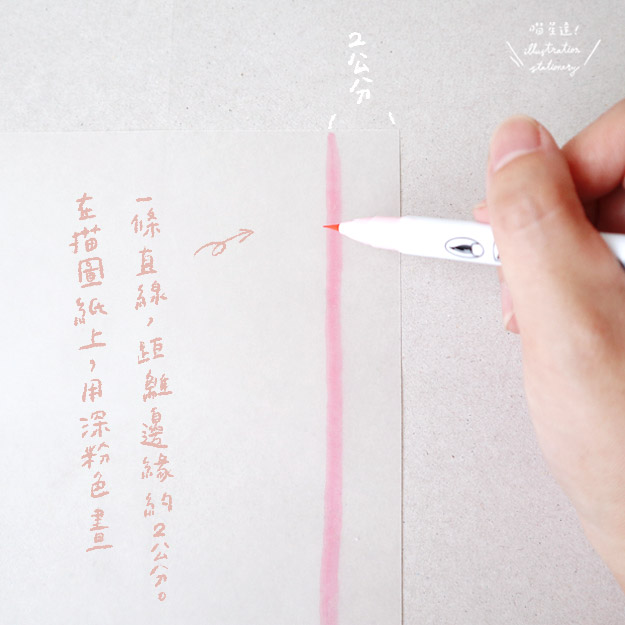 2公分
illustration
stationary
在描圖紙上，用深粉色畫
一條直線，距離邊緣約2公分。